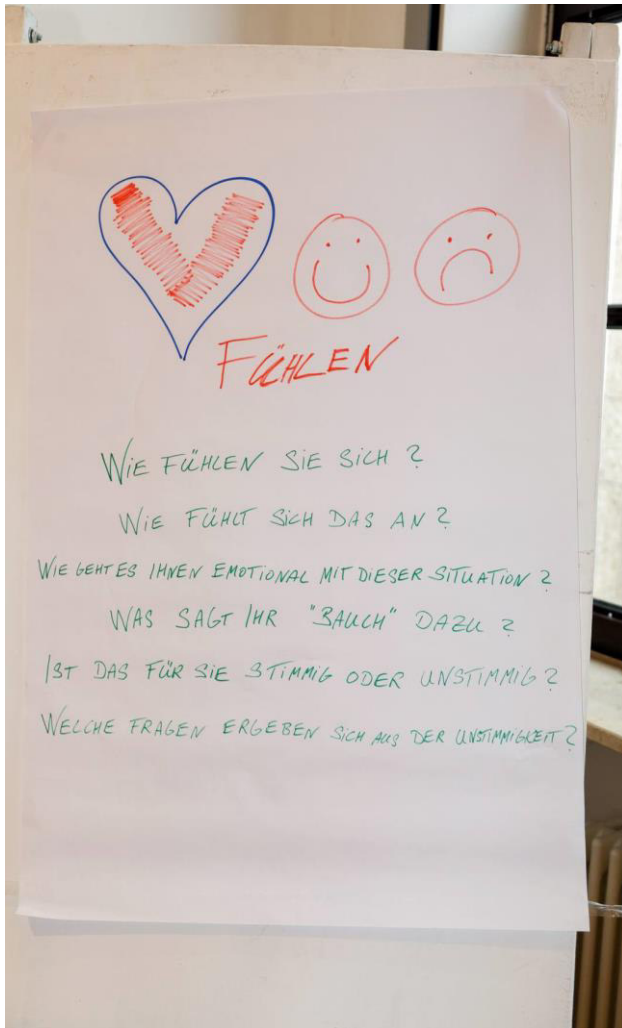 FÜHLEN
WIE FÜHLEN SIE SICH ?
WIE FÜHLT SICH DAS AN ?
WIE GEHT ES IHNEN EMOTIONAL MIT DIESER SITUATION ?
WAS SAGT IHR "BAUCH" DAZU ?
IST DAS FÜR SIE STIMMIG ODER UNSTIMMIG ?
WELCHE FRAGEN ERGEBEN SICH AUS DER UNSTIMMIGKEIT ?